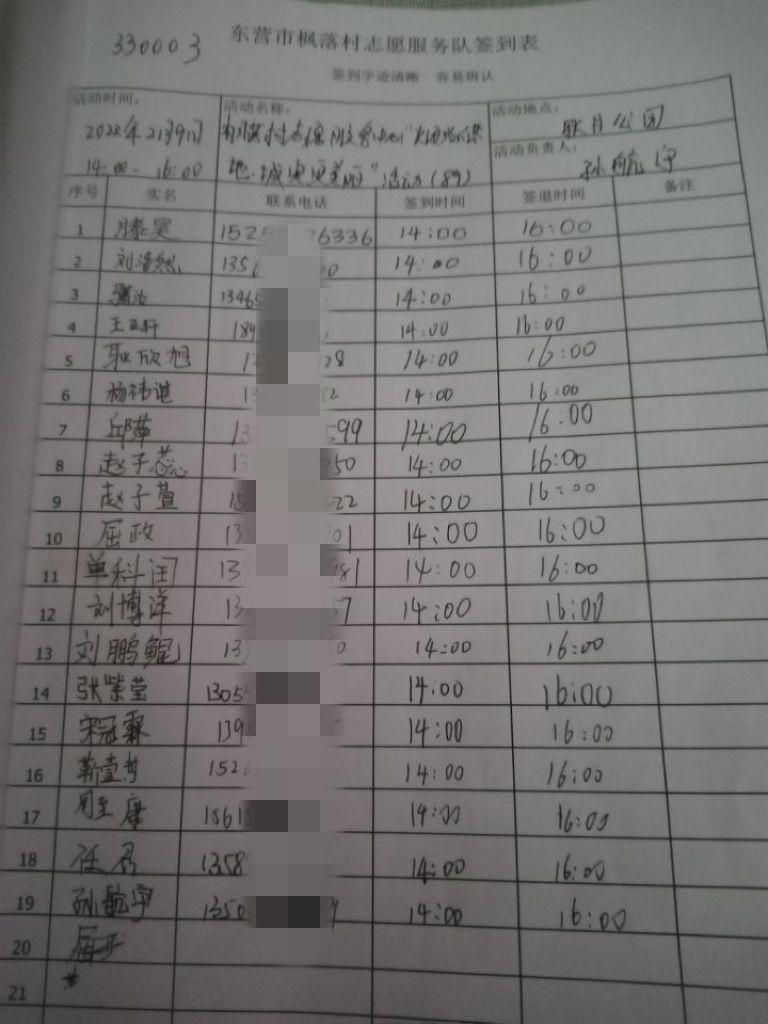 330003
东营市枫落村志愿服务队签到表
签到字迹清晰 容易辨认
活动时间：
2022年2月9日
14:00-16:00
活动名称：
地,城市更美丽"活动(89)
活动地点：
公园
活动负责人：
孙航宇
序号 实名 联系电话 签到时间 签退时间 备注
1 滕昊 152 76336 14:00 16:00
2 刘浩然 135 0 14:00 16:00
3 13465 14:00 16:00
4 王正轩 189 14:00 16:00
5 耿欣旭 1 28 14:00 16:00
6 杨祎谌 13 2 14:00 16:00
7 邱萍 13 599 14:00 16:00
8 赵子蕊 13 050 14:00 16:00
9 赵子萱 15 22 14:00 16:00
10 屈政 13 01 14:00 16:00
11 单科闰 13 981 14:00 16:00
12 刘博洋 13 57 14:00 16:00
13 刘鹏鲲 13 0 14:00 16:00
14 张紫莹 1305 14:00 16:00
15 宋冠霖 139 14:00 16:00
16 靳壹 152 14:00 16:00
17 周 康 1561 14:00 16:00
18 任君 1358 14:00 16:00
19 孙航宇 1350 9 14:00 16:00
20
21